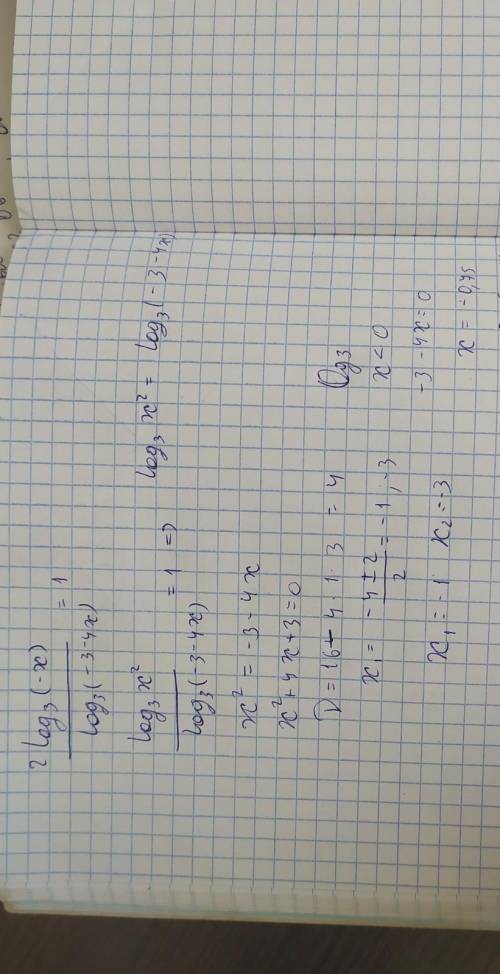 2 log₃(-x) / log₃(-3-4x) = 1
log₃ x² / log₃(-3-4x) = 1 => log₃ x² = log₃(-3-4x)
x² = -3-4x
x²+4x+3=0
D = 16-4·1·3 = 4
x₁ = -4±2 / 2 = -1; -3
x₁ = -1 x₂ = -3
ОДЗ
x < 0
-3-4x=0
x = -0,75